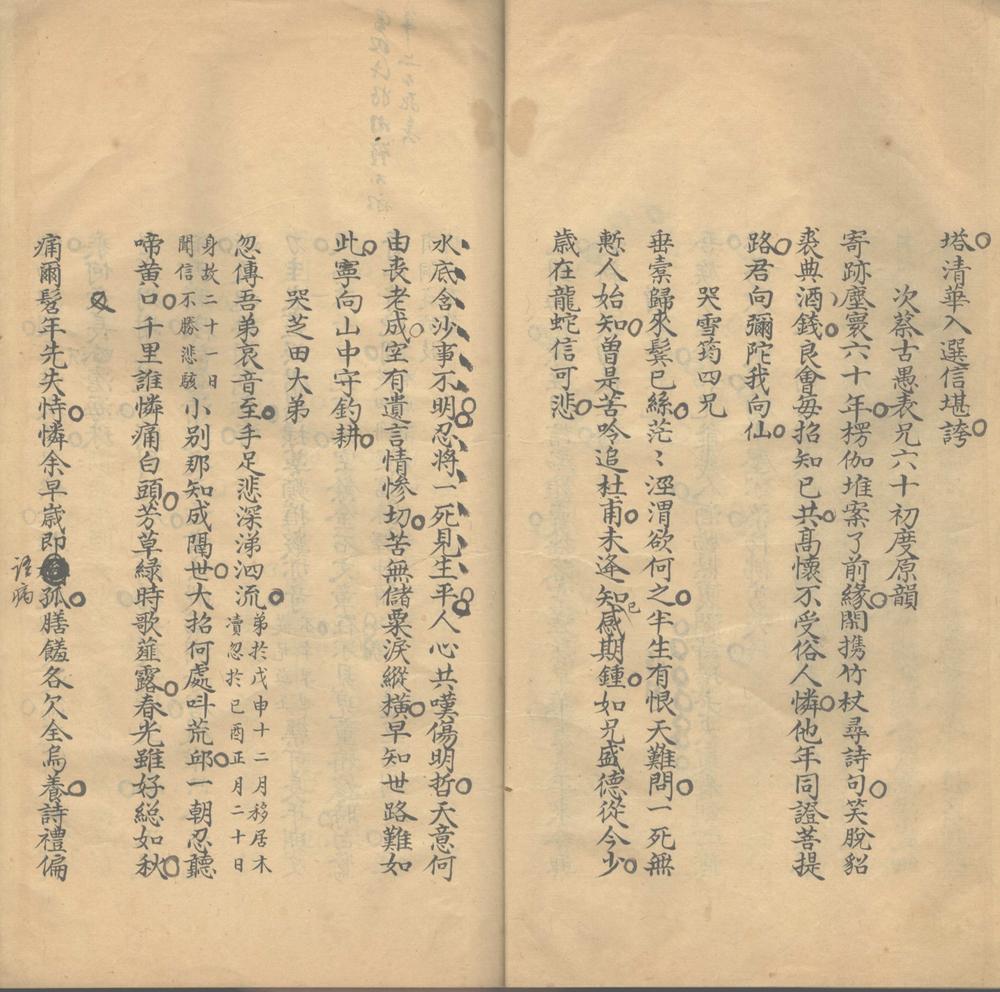 塔清華入選信堪誇
次蔡古愚表兄六十初度原韻
寄跡塵寰六十年楞伽堆案了前緣閒攜竹杖尋詩句笑脫貂
裘典酒錢良會每招知已共高懷不受俗人憐他年同證菩提
路君向彌陀我向仙
哭雪筠四兄
垂橐歸來鬂已絲茫〻涇渭欲何之半生有恨天難問一死無
慙人始知曾是苦吟追杜甫未逢知己感期鍾如兄盛德從今少
歲在龍蛇信可悲
水底含沙事不明忍將一死見生平人心共嘆傷明哲天意何
由喪老成空有遺言情慘切苦無儲粟淚縱橫早知世路難如
此寧向山中守釣耕
哭芝田大弟
忽傳吾弟哀音至手足悲深涕泗流弟於戊申十二月移居木
賣忽於己酉正月二十日
身故二十一日
聞信不勝悲駭小别那知成隔世大招何處呌荒邱一朝忍聽
啼黃口千里誰憐痛白頭芳草綠時歌薤露春光雖好総如秋
又
痛爾髫年先失恃憐余早歲即孤膳饈各欠全烏養詩禮偏